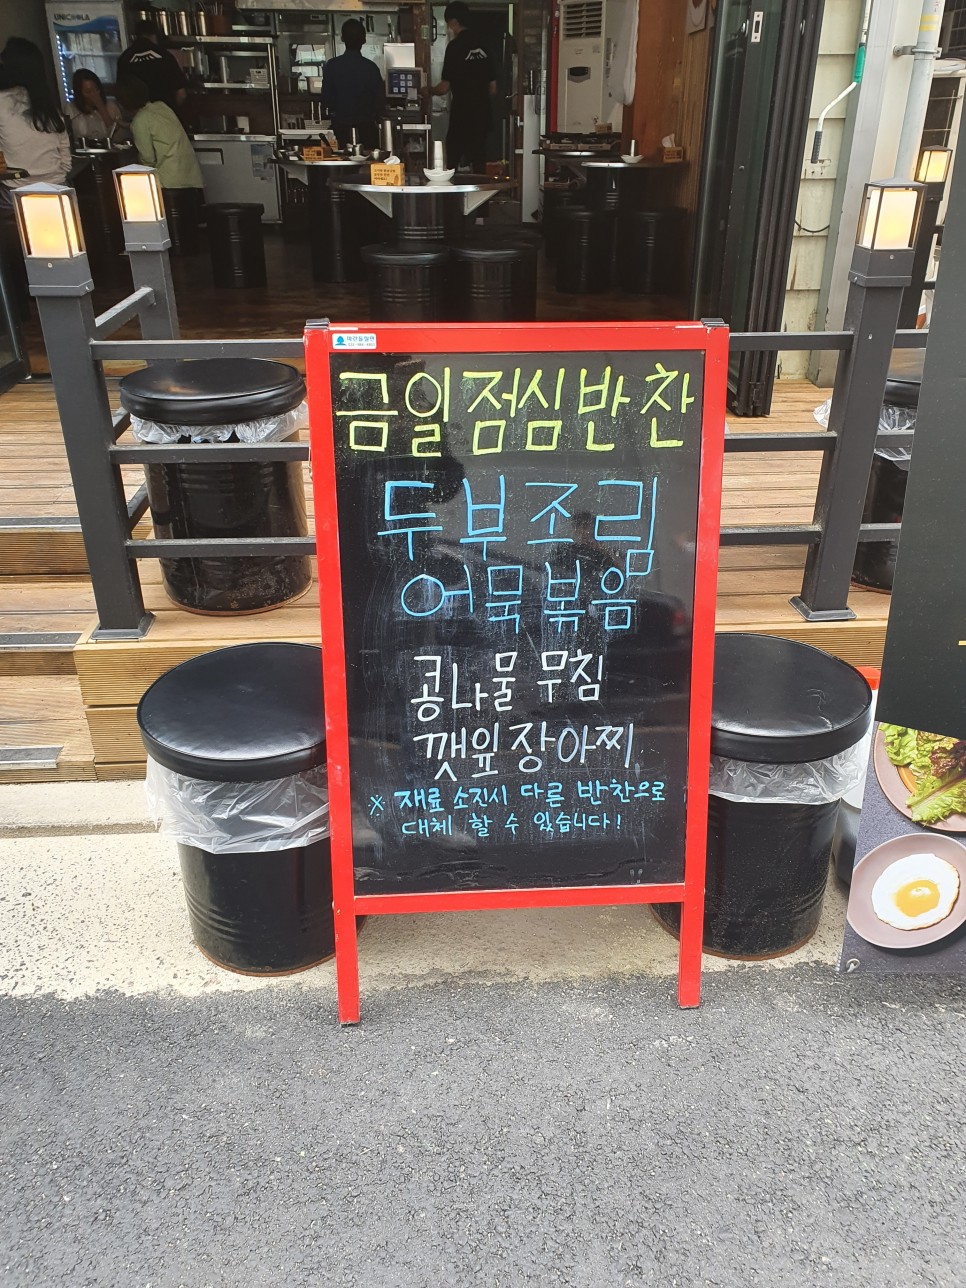 금일점심반찬
두부조림
어묵볶음
콩나물 무침
깻잎장아찌
※ 재료 소진시 다른 반찬으로
대체 할 수 있습니다!